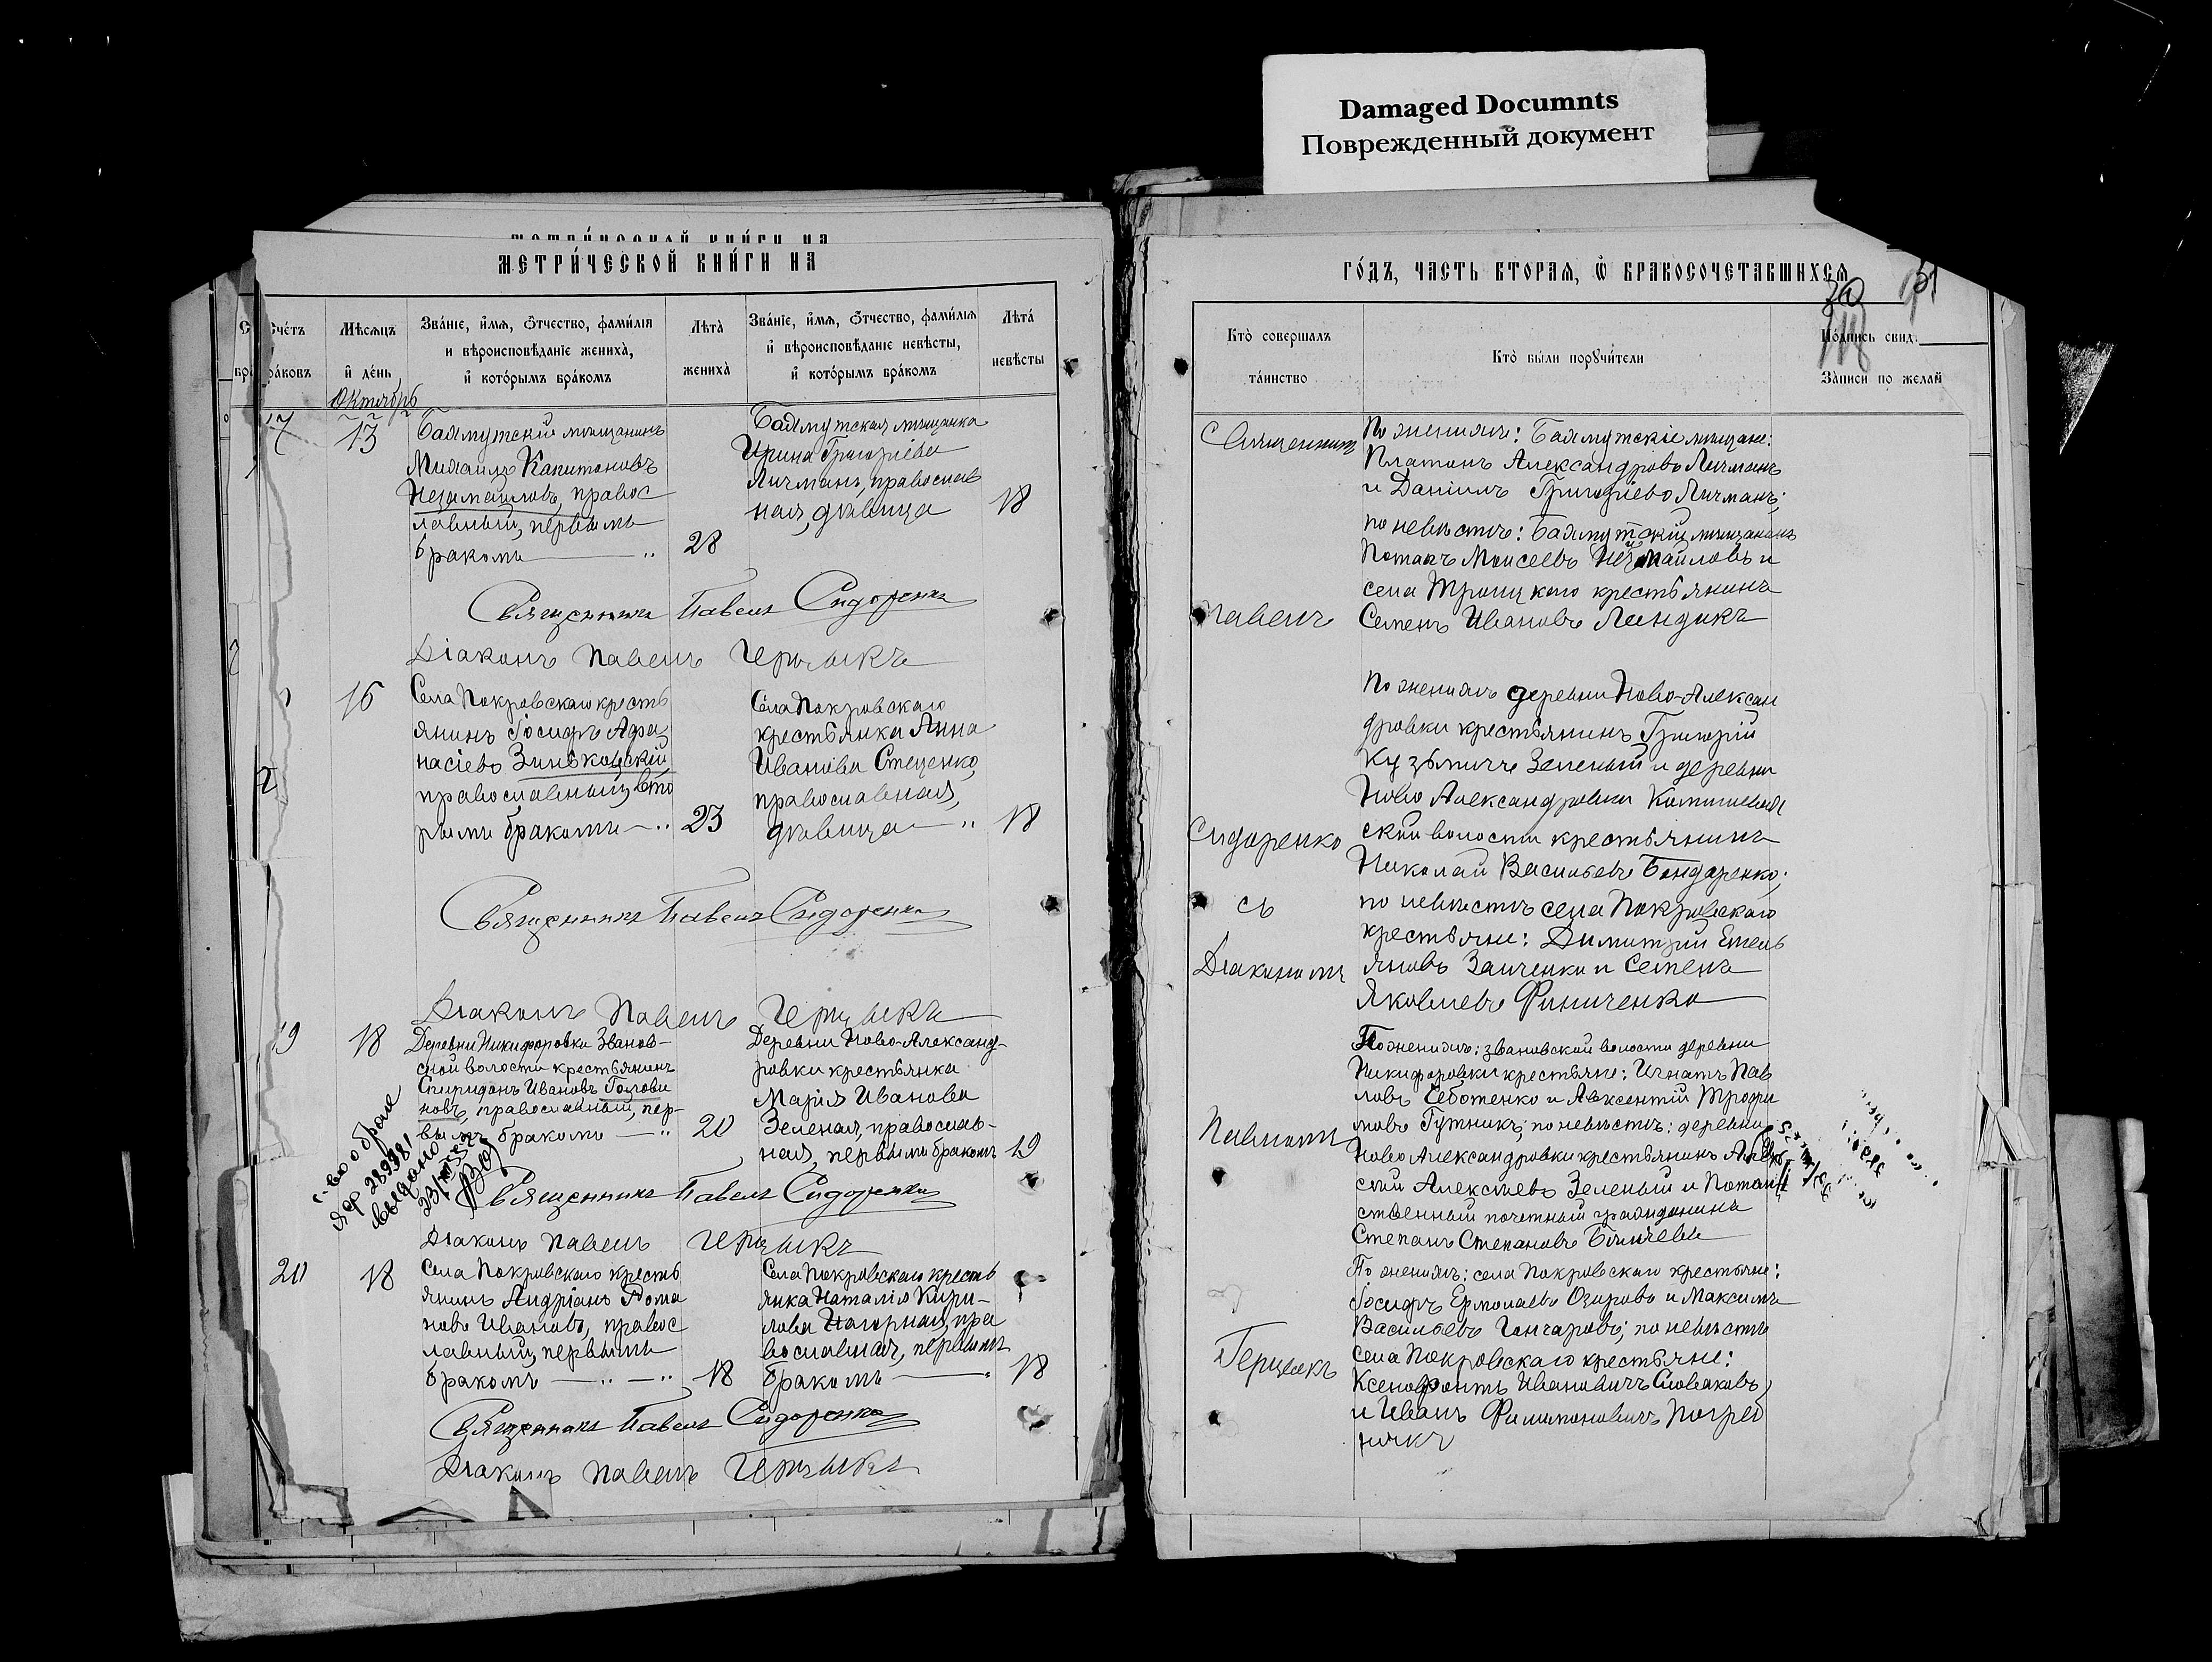 Damaged Documnts
Поврежденный документ
МЕТРИ́ЧЕСКОЙ КНИ́ГИ НА
Сче́тъ
бра́ковъ
Мѣ́сяцъ
и҆ де́нь
Зва́нїе, и҆́мя, ѻ҆́тчество, фами́лїя
и вѣроисповѣ́данїе жениха̀,
и҆ кото́рымъ бра́комъ
Лѣ́та
жениха̀
Зва́нїе, и҆́мя, ѻ҆́тчество, фами́лїя
и҆ вѣроисповѣ́данїе невѣ́сты,
и҆ кото́рымъ бра́комъ
Лѣ́та
невѣ́сты
Октябрь
17
13
Бахмутскій мѣщанинъ
Михаилъ Капитоновъ
Незамайловъ, правос
лавный, первымъ
бракомъ
28
Бахмутская мѣщанка
Ирина Григоріева
Личманъ, православ
ная, дѣвица
18
Священникъ Павелъ Сидоренко
Діаконъ Павелъ
16
Села Покровскаго кресть
янинъ Іосифъ Афа
насіевъ Зиньковскій
православный, вто
рымъ бракомъ
23
Села Покровскаго
крестьянка Анна
Иванова Стеценко,
православная,
дѣвица
18
Священникъ Павелъ Сидоренко
Діаконъ Павелъ
19
18
Деревни Никифоровки Званов-
ской волости крестьянинъ
Спиридонъ Ивановъ
новъ, православный, пер-
вымъ бракомъ
20
Деревни Ново-Александ-
ровки крестьянка
Марія Иванова
Зеленая, православ-
ная, первымъ бракомъ
19
с-во о браке
ЯФ 289981
выдано
Священникъ Павелъ Сидоренко
Діаконъ Павелъ
20
18
Села Покровскаго кресть
янинъ Андріанъ Рома
новъ Ивановъ, правос
лавный, первымъ
бракомъ
18
Села Покровскаго кресть
янка Наталія Кири-
лова Нагорная, пра
вославная, первымъ
бракомъ
18
Священникъ Павелъ Сидоренко
Діаконъ Павелъ
ГО́ДЪ, ЧАСТЬ ВТОРАЯ, Ѡ҆ БРАКОСОЧЕТАВШИХСЯ
51
Кто̀ соверша́лъ
та́инство
Кто̀ бы́ли порꙋчи́тели
По́дпись свид.
За́писи по жела́н
Священникъ
Павелъ
Сидоренко
съ
Діакономъ
Павломъ
По женихѣ: Бахмутскіе мѣщане:
Платонъ Александровъ Личманъ
и Даніилъ Григоріевъ Личманъ;
по невѣстѣ: Бахмутскій мѣщанинъ
Потапъ Моисеевъ Незамайловъ и
села Троицкаго крестьянинъ
Семенъ Ивановъ Линдикъ
По женихѣ деревни Ново-Алексан
дровки крестьянинъ Григорій
Кузьмичъ Зеленый и деревни
Ново Александровки
ской волости крестьянинъ
Николай Васильевъ Бондаренко;
по невѣстѣ села Покровскаго
крестьяне: Димитрій Емель
яновъ Заиченко и Семенъ
Яковлевъ Финиченко
По женихѣ: Звановской волости деревни
Никифоровки крестьяне: Игнатъ Пав
ловъ Сѣботенко и Авксентій Трофи
мовъ Гутникъ; по невѣстѣ: деревни
Ново Александровки крестьянинъ Алек
сѣй Алексѣевъ Зеленый и Потом
ственный почетный гражданинъ
Степанъ Степановъ
По женихѣ: села Покровскаго крестьяне:
Іосифъ Ермолаевъ Озировъ и Максимъ
Васильевъ Гончаровъ; по невѣстѣ
села Покровскаго крестьяне:
Ксенофонтъ Ивановичъ Словаковъ
и Иванъ Филимоновичъ Погреб
някъ